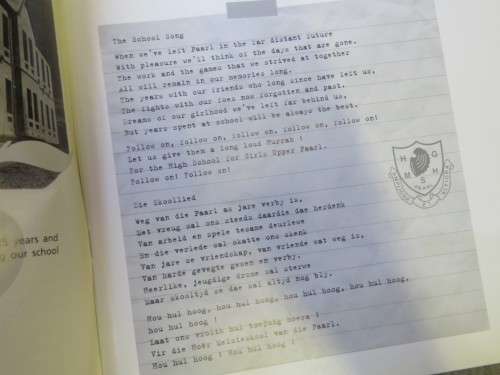 The School Song
When we've left Paarl in the far distant future
With pleasure we'll think of the days that are gone.
The work and the games that we strived at together
All will remain in our memories long.
The years with our friends who long since have left us,
The fights with our foes now forgotten and past.
Dreams of our girlhood we've left far behind us,
But years spent at school will be always the best.
Follow on, follow on, follow on, follow on, follow on!
Let us give them a long loud Hurrah !
For the High School for Girls Upper Paarl.
Follow on! Follow on!
Die Skoollied
Weg van die Paarl as jare verby is,
Met vreug sal ons steeds daardie dae herdenk
Van arbeid en spele tesame deurlewe
En die verlede sal skatte ons skenk
Van jare se vriendskap, van vriende wat weg is,
Van harde gevegte gewen en verby.
Heerlike, jeugdige drome sal sterwe
Maar skooltyd se dae sal altyd nog bly.
Hou hul hoog, hou hul hoog, hou hul hoog, hou hul hoog,
hou hul hoog !
Laat ons vrolik hul toejuig hoera !
Vir die Hoër Meisieskool van die Paarl.
Hou hul hoog ! Hou hul hoog !
H G
M S H
PAARL
years and
our school